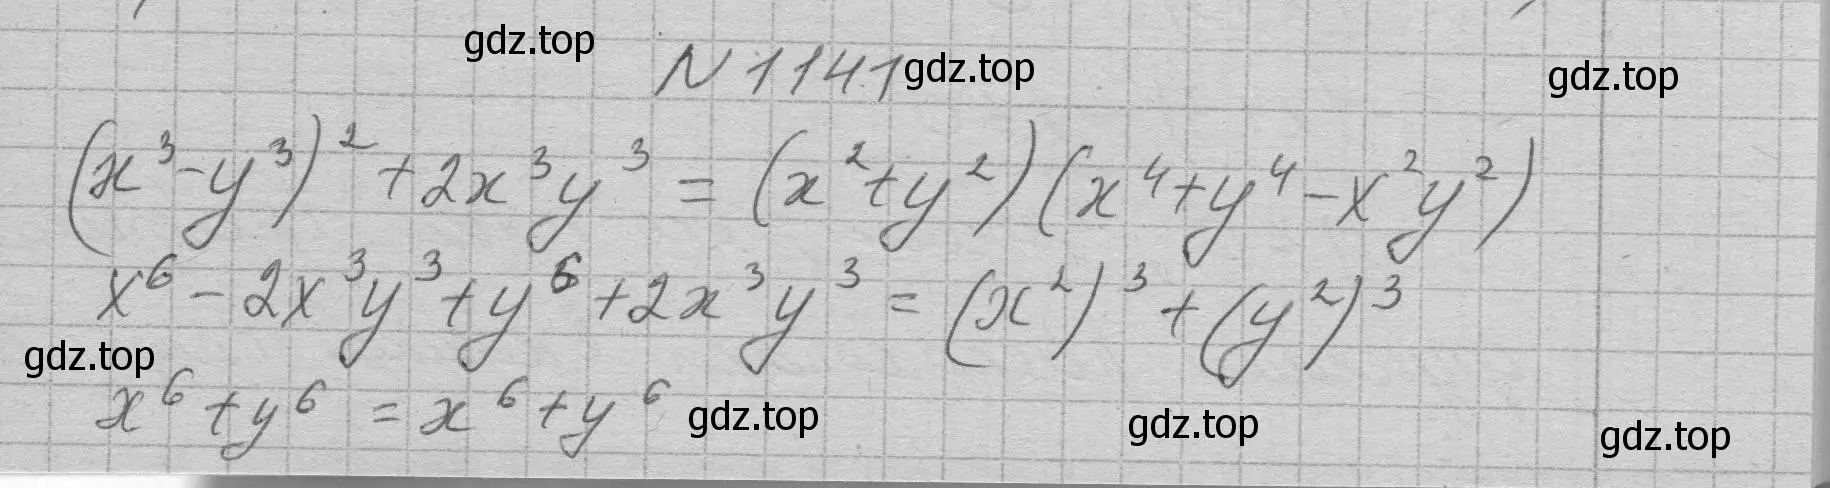 gdz.top
N 1141 gdz.top gdz.top
(x³-y³)²+2x³y³=(x²+y²)(x⁴+y⁴-x²y²)
x⁶-2x³y³+y⁶+2x³y³=(x²)³+(y²)³
gdz.top
x⁶+y⁶=x⁶+y⁶ gdz.top gdz.top gdz.top